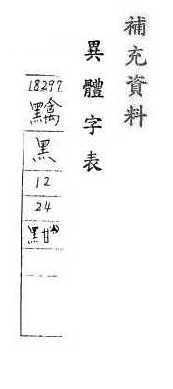 補充資料
異體字表
18297
黑
12
24
黚